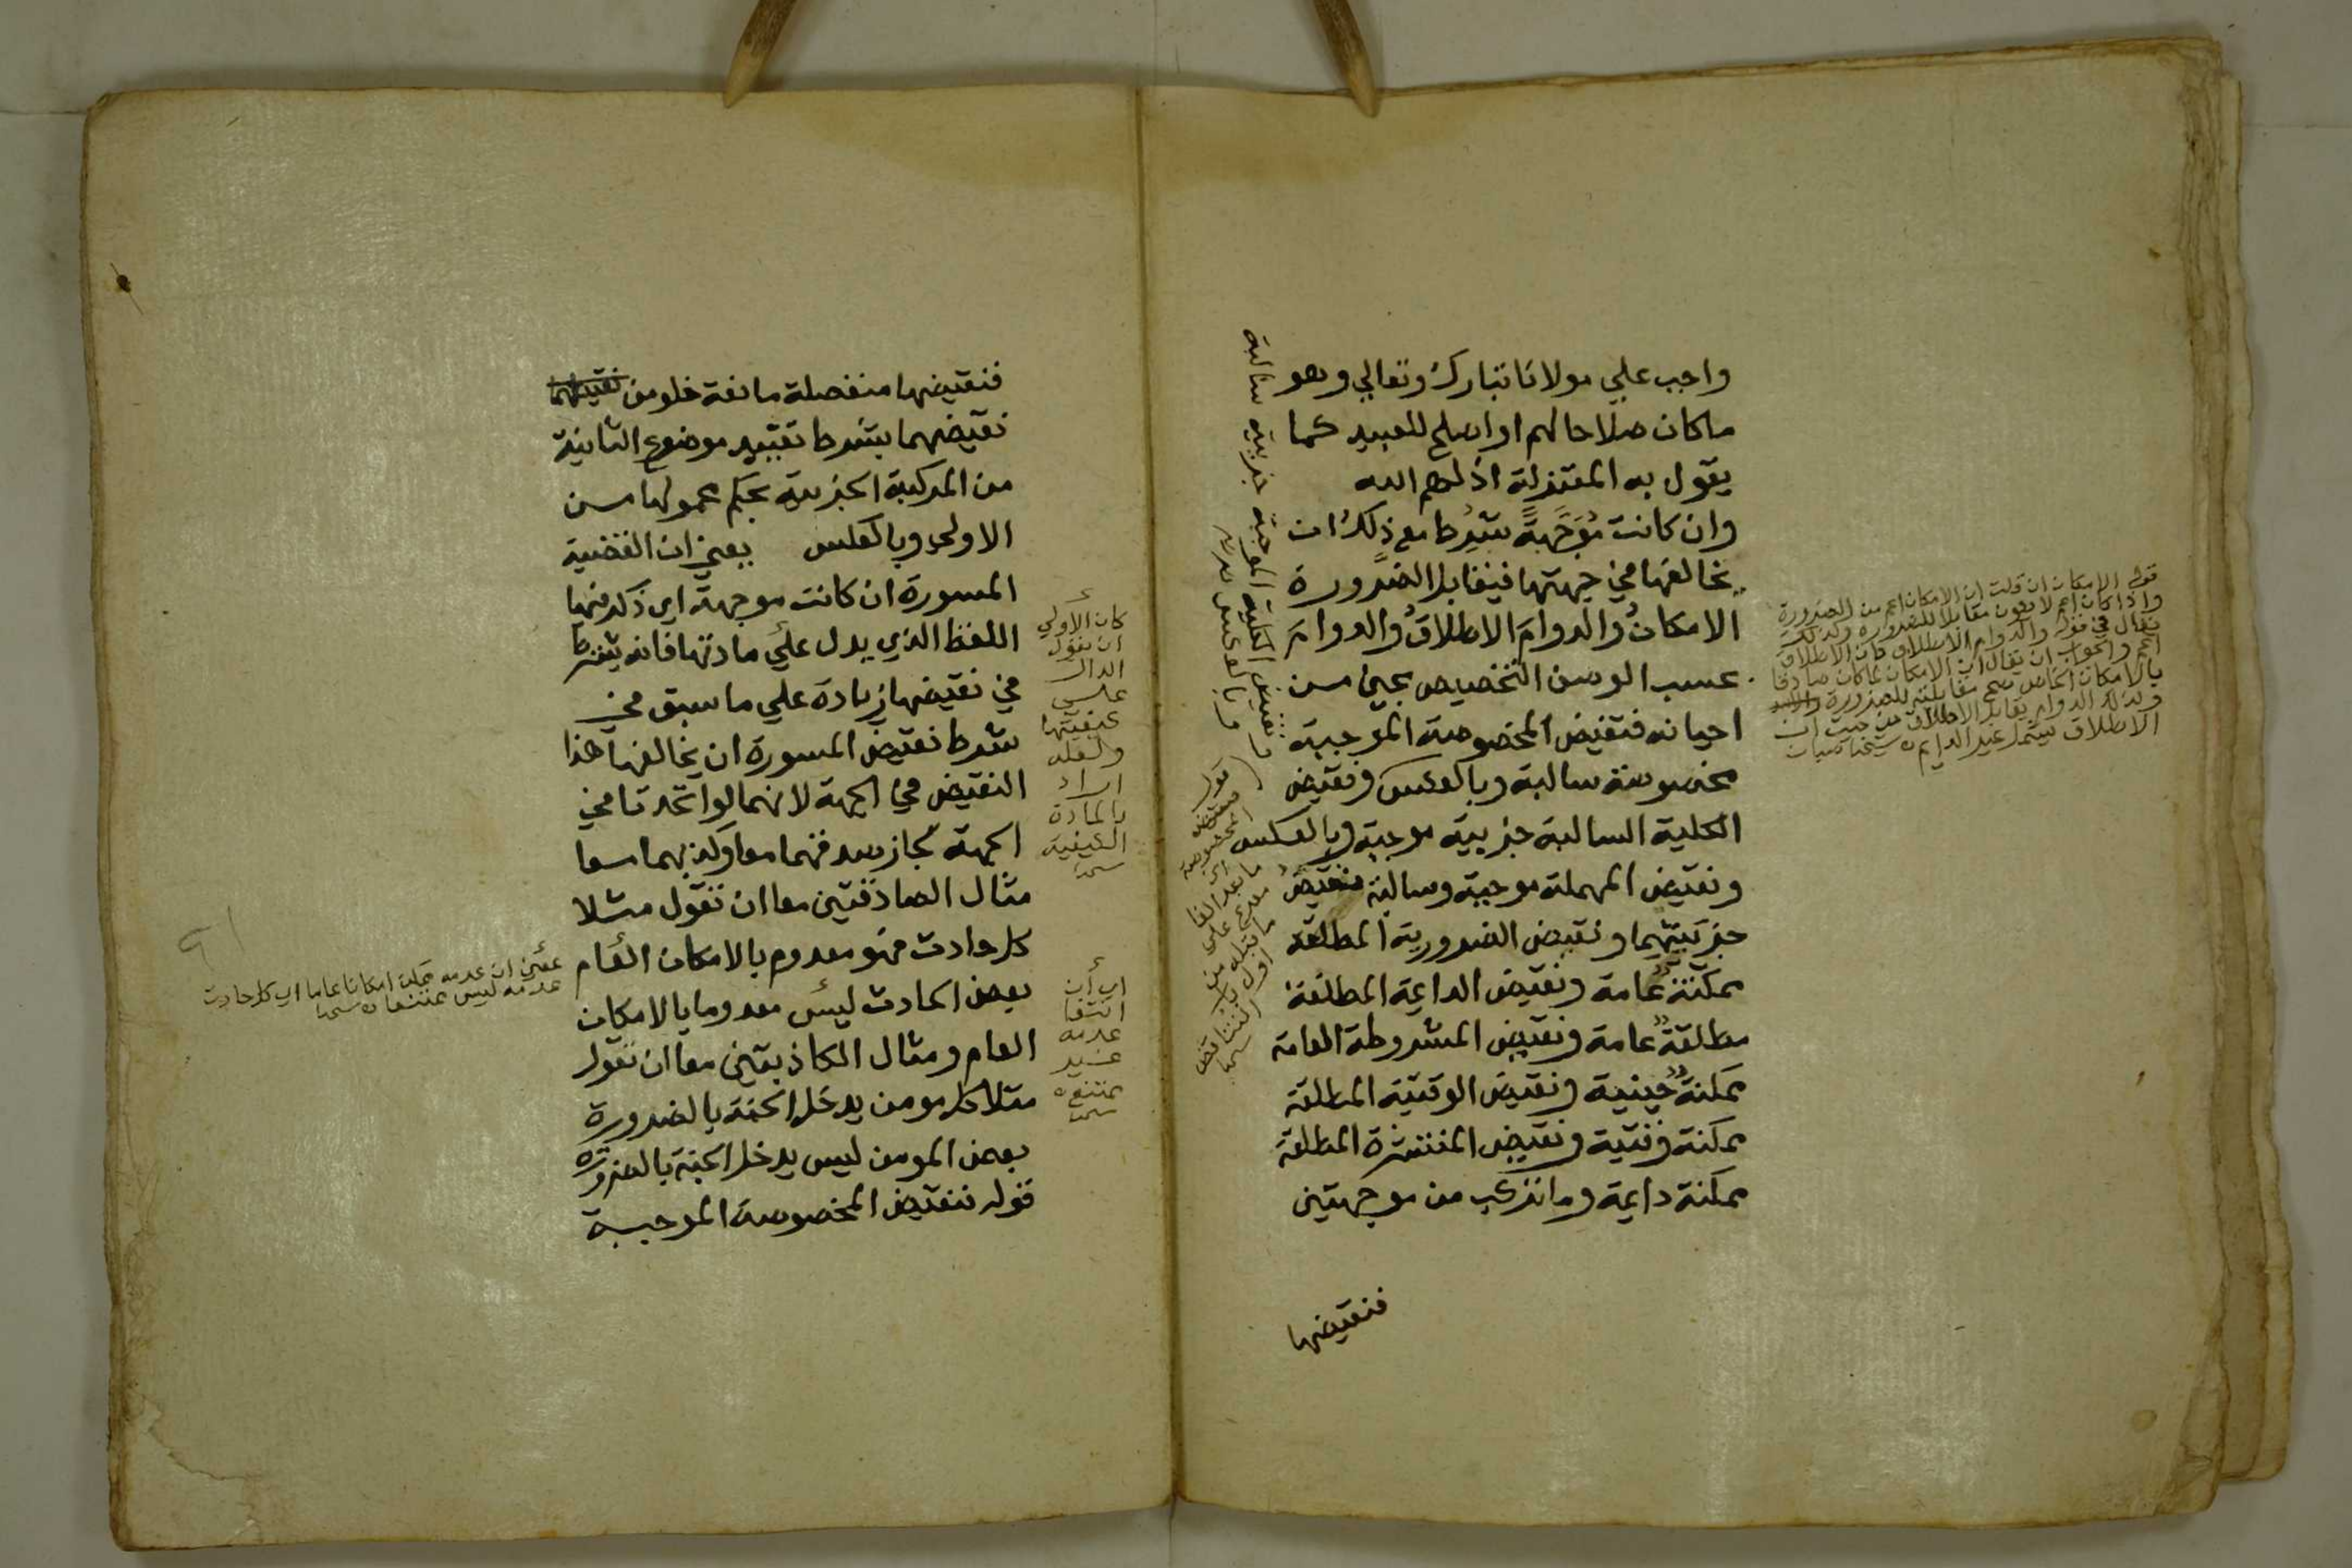 واجب علي مولانا تبارك وتعالي وهو
ما كان صلاحا لهم او اصلح للعبيد كما
يقول به المعتزلة اذلهم الله
وان كانت مُوَجَّهةً بشرط مع ذلك ان
يخالفها في جهتها فيقابل الضرورة
الامكانُ والدوامَ الاطلاقُ والدوامَ
بحسب الوصف التخصيص بحين من
احيانه فنقيض المخصوصة الموجبة
مخصوصة سالبة وبالعكس ونقيض
الكلية السالبة جزيية موجبة وبالعكس
ونقيض المهملة موجبة وسالبة نقيض
جزييتهما ونقيض الضرورية المطلقة
ممكنة عامة ونقيض الدايمة المطلقة
مطلقة عامة ونقيض المشروطة العامة
ممكنة حينية ونقيض الوقتية المطلقة
ممكنة وقتية ونقيض المنتشرة المطلقة
ممكنة دايمة وما تركب من موجهتين
فنقيضها
ونقيض الكلية الموجبة جزيية سالبة
وبالعكس
قوله الامكان ان قلت ان الامكان اعم من الضرورة
واذا كان اعم لا يكون مقابلا للضرورة وكذلك
يقال في قوله والدوام الاطلاق فان الاطلاق
اعم والجواب ان يقال ان الامكان لما كان صادقا
بالامكان الخاص صح مقابلته للضرورة
وكذلك الدوام يقابل الاطلاق من حيث ان
الاطلاق يشمل غير الدايم ه شيخنا
قوله
فنقيض
المخصوصة
ما بعد الفا
مفرع على
ما قبله من
اول
التناقض
فنقيضها منفصلة مانعة خلو من نقيضهما
نقيضهما بشرط تقييد موضوع الثانية
من المركبة الجزيية بحكم محمولها من
الاولى وبالعكس يعني ان القضية
المسورة ان كانت موجهة اي ذكر فيها
اللفظ الذي يدل علي مادتها فانه يشترط
في نقيضها زيادة علي ما سبق في
شرط نقيض المسورة ان يخالفها هذا
النقيض في الجهة لانهما لو اتحدتا في
الجهة لجاز صدقهما معا وكذبهما معا
مثال الصادقتين معا ان تقول مثلا
كل حادث فهو معدوم بالامكان العام
بعض الحادث ليس معدوما بالامكان
العام ومثال الكاذبتين معا ان تقول
مثلا كل مومن يدخل الجنة بالضرورة
بعض المومن ليس يدخل الجنة بالضرورة
قوله فنقيض المخصوصة الموجبة
كان الاولي
ان يقول
الدال
على
كيفيتها
ولعله
اراد
بالمادة
الكيفية
اي ان
انتفا
عدمه
غير
ممتنع ه
بمعنى ان عدمه ممكن امكانا عاما اي كل حادث
عدمه ليس ممتنعا ه